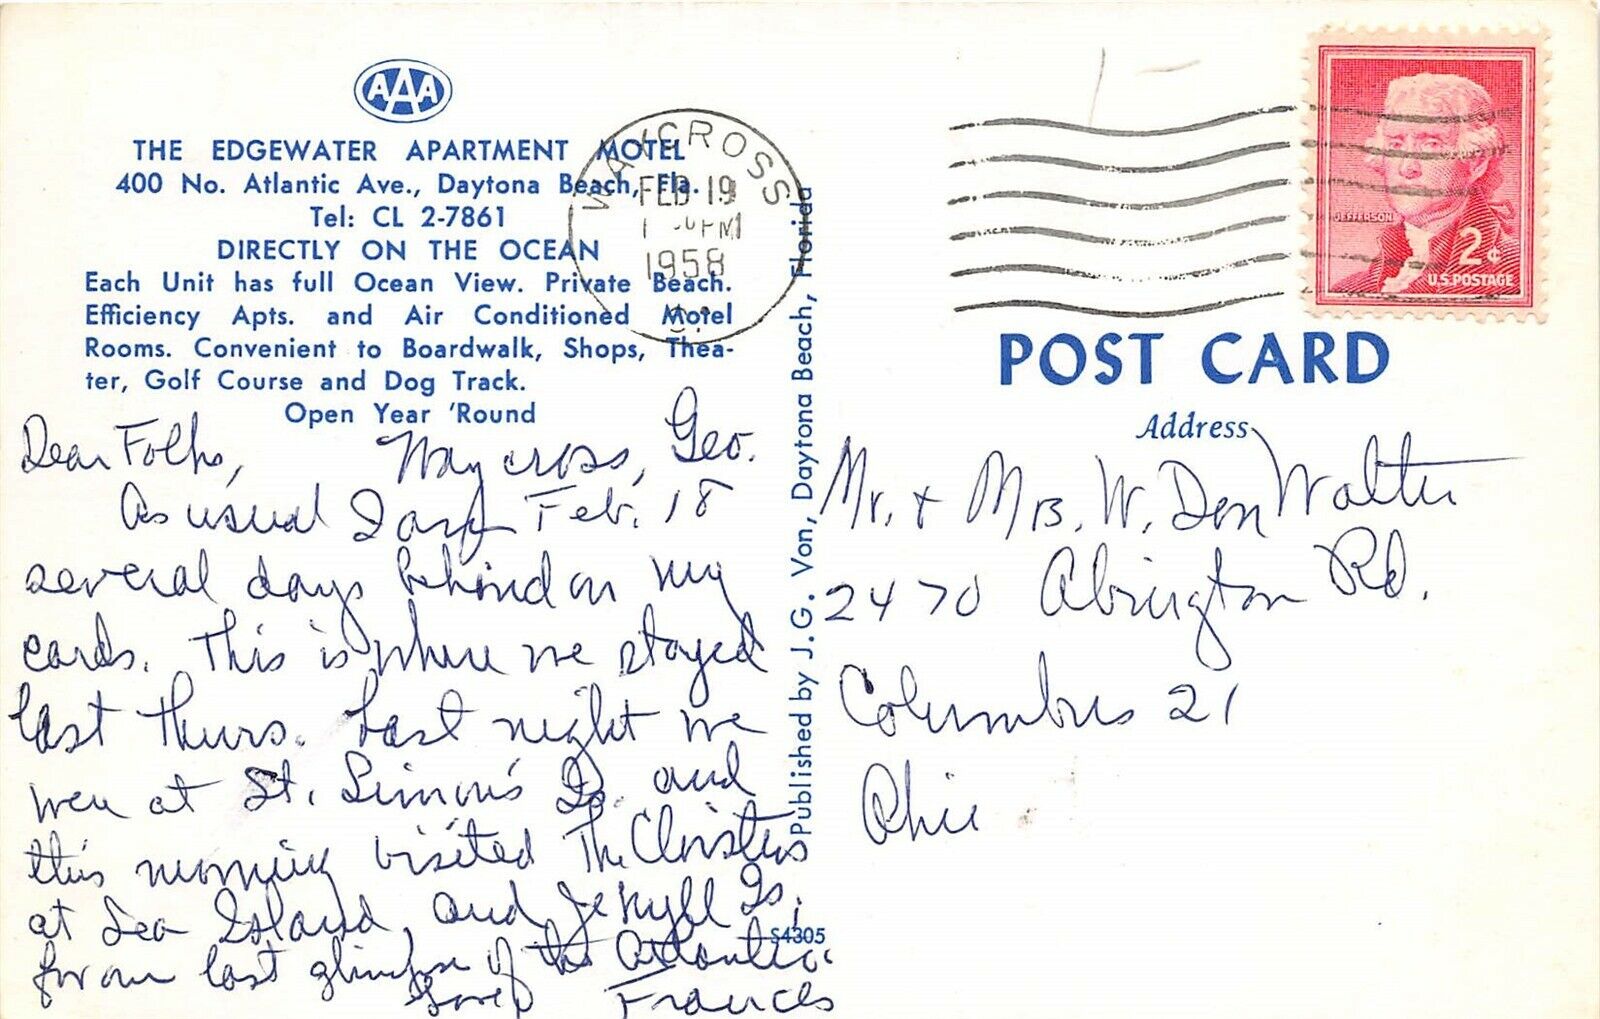 AAA
THE EDGEWATER APARTMENT MOTEL
400 No. Atlantic Ave., Daytona Beach, Fla.
Tel: CL 2-7861
DIRECTLY ON THE OCEAN
Each Unit has full Ocean View. Private Beach.
Efficiency Apts. and Air Conditioned Motel
Rooms. Convenient to Boardwalk, Shops, Thea-
ter, Golf Course and Dog Track.
Open Year 'Round
WAYCROSS
FEB 19
PM
1958
JEFFERSON
2¢
U.S. POSTAGE
POST CARD
Address
Waycross, Geo.
Feb. 18
Dear Folks,
As usual I am
several days behind on my
cards. This is where we stayed
last Thurs. Last night we
were at St. Simon's Is. and
this morning visited The Cloisters
at Sea Island and Jekyll Is.
for our last glimpse of the Atlantic.
Love Frances
Published by J. G. Von, Daytona Beach, Florida
S4305
Mr. + Mrs. W. Don Walter
2470 Abington Rd.
Columbus 21
Ohio